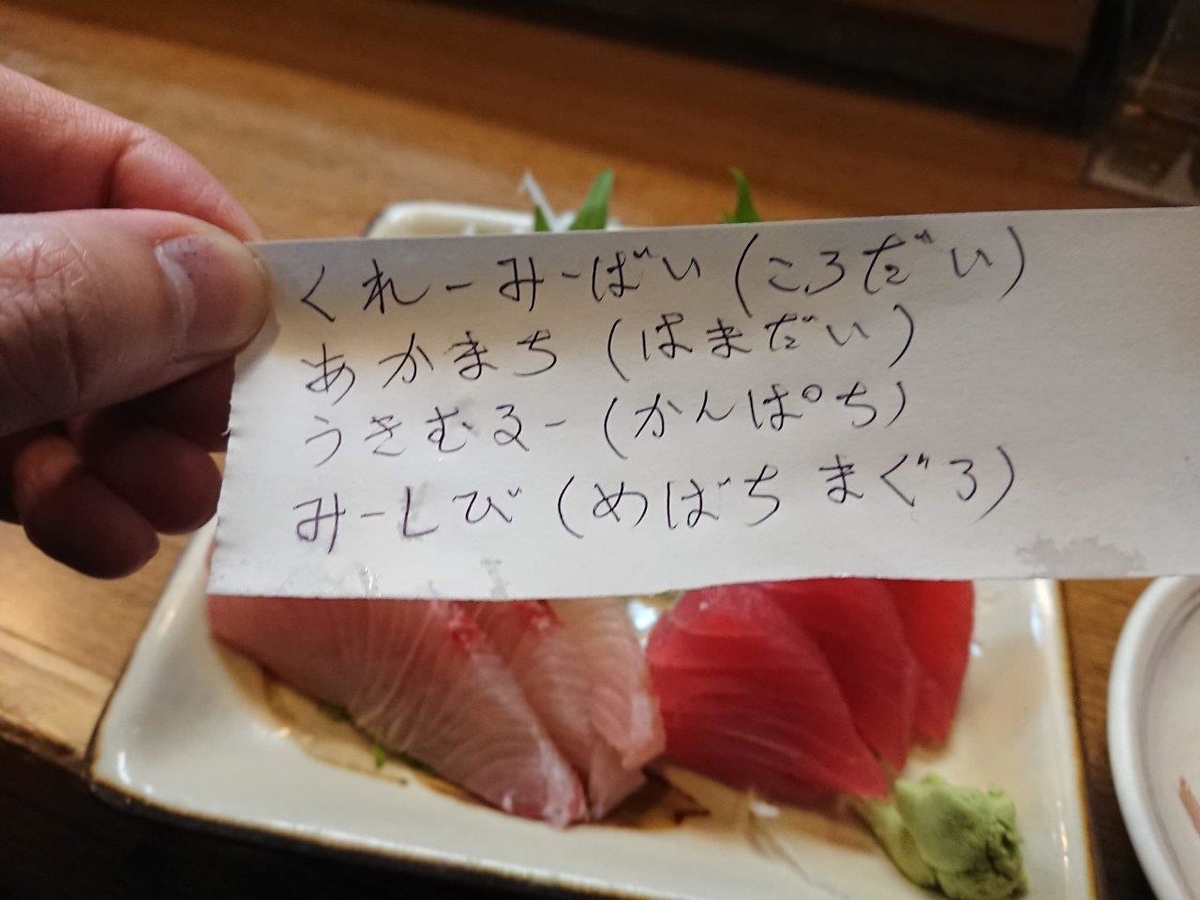 くれーみーばい(ころだい)
あかまち(はまだい)
うきむるー(かんぱち)
みーしび(めばち まぐろ)